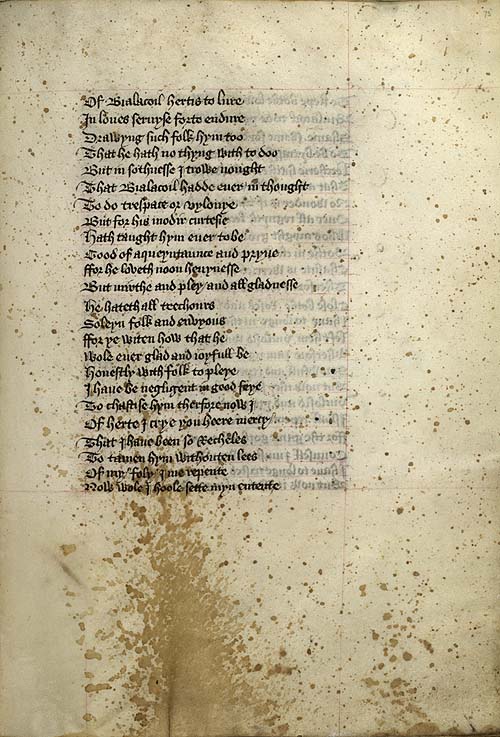 Of Bialacoil hertis to lure
In loues seruyse forto endure
Drawyng such folk hym too
That he hath no thyng with to doo
But in sothnesse I trowe nought
That Bialacoil hadde euer in thought
To do trespace or vylonye
But for his modir curtesie
Hath taught hym euer to be
Good of aqueyntaunce and pryue
ffor he loveth noon heuynesse
But mirthe and pley and all gladnesse
He hateth all trechours
Soleyn folk and envyous
ffor ye witen how that he
Wole euer glad and ioyfull be
Honestly with folk to pleye
I haue be negligent in good feye
To chastise hym therfore now I
Of herte I crye you heere mercy
That I haue been so recheles
To tamen hym withouten lees
Of my foly I me repente
Now wole I hoole sette myn entente